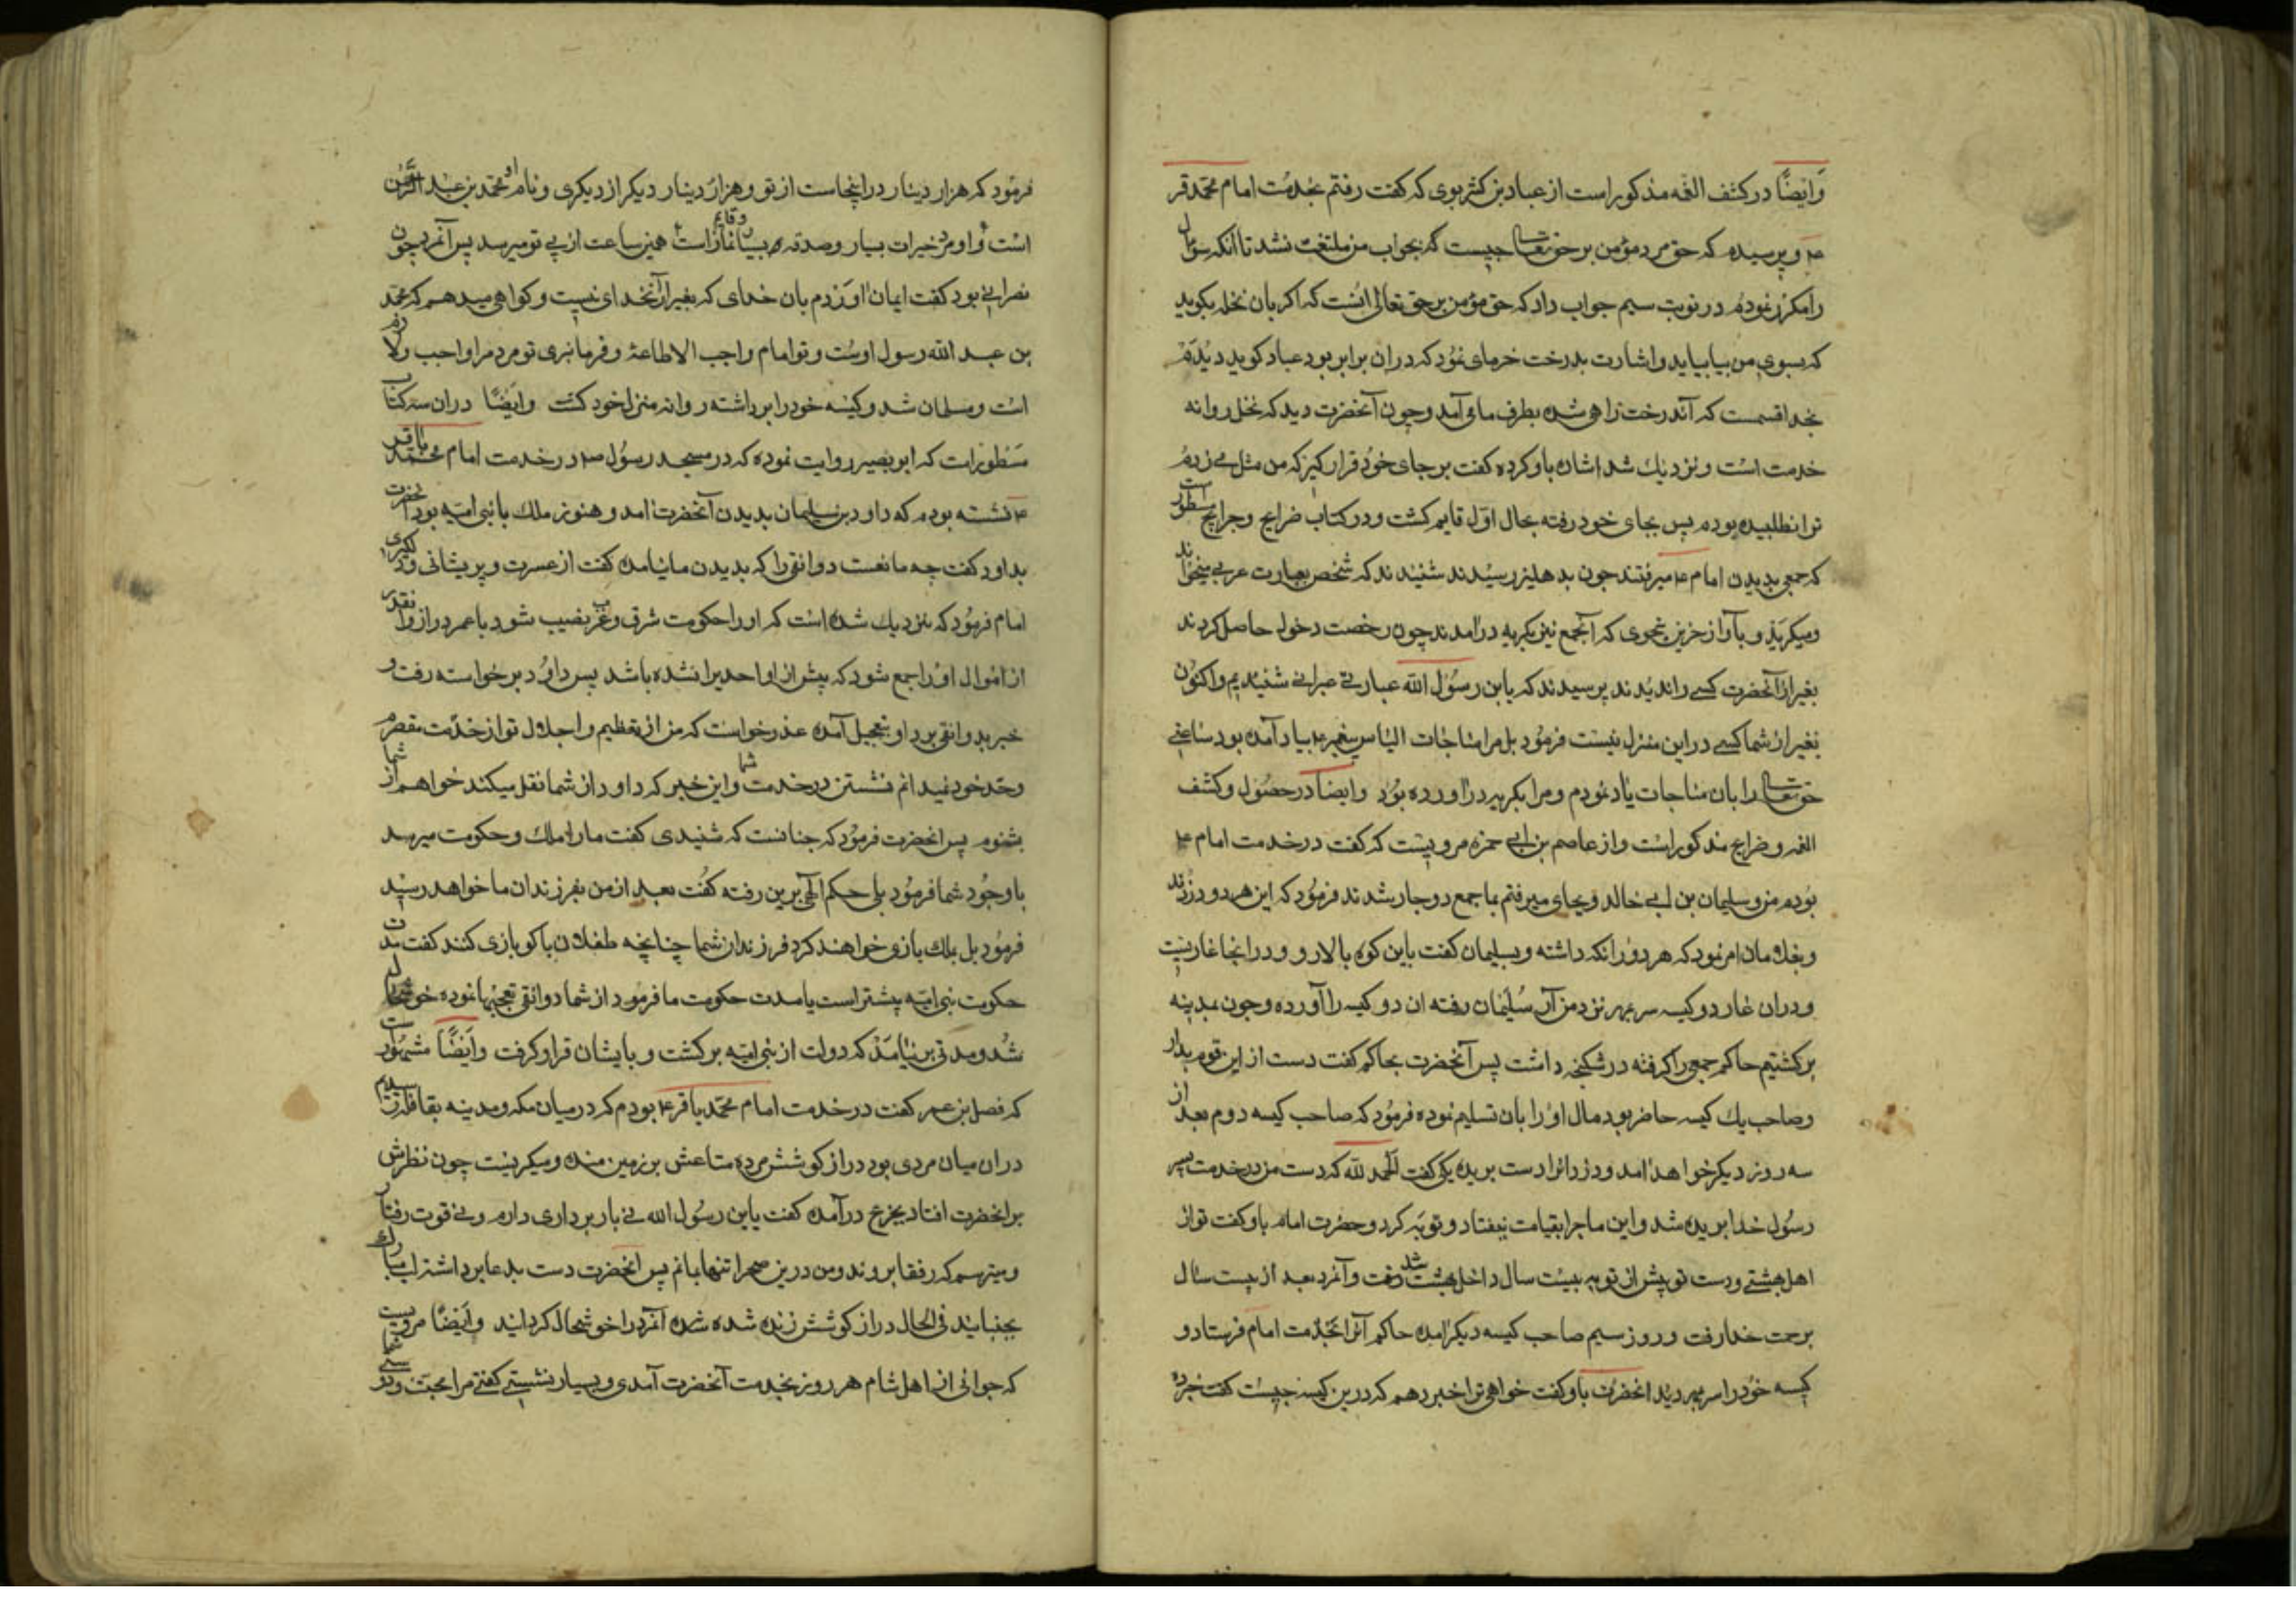 وَایضًا در کشف الغمه مذکور است از عباد بن کثیر بوی که کفت رفتم بخدمت امام محمد قر
ع و پرسیده که حق مرد مؤمن بر حق تعالی چیست که بجواب من ملتفت نشد تا انکه سؤال
را مکرر نموده در نوبت سیم جواب داد که حق مؤمن بر حق تعالی انست که اکر بان نخله بکوید
که بسوی من بیا بیاید و اشارت بدرخت خرمای نمود که دران برابر بود عباد کوید دیدم
بخدا قسمت که آندرخت راهی شده بطرف ما می آمد و چون آنحضرت دید که نخل روانه
خدمت است و نزدیك شد اشاره باو کرده کفت بر جای خود قرار کیر که من مثل می زدم
ترا نطلبیده بودم پس بجای خود رفته بحال اول قایم کشت و در کتاب خرایج و جرایح مسطور است
که جمعی بدیدن امام ع میرفتند چون بدهلیز رسیدند شنیدند که شخصی بعبارت عربی میخواند
و میکرید و بآواز حزین بنحوی که آنجمع نیز بکریه درآمدند چون رخصت دخول حاصل کردند
بغیر از آنحضرت کسی را ندیدند پرسیدند که یابن رسول الله عبارتی عبرانی شنیدیم و اکنون
بغیر از شما کسی در این منزل نیست فرمود بل مرا مناجات الیاس پیغمبر ع بیاد آمده بود ساعتی
حق تعالی را بان مناجات یاد نمودم و مرا بکریه دراورده بود وایضا در حصول و کشف
الغمه و خرایج مذکور است و از عاصم بن ابی حمزه مرویست که کفت در خدمت امام ع
بودم من و سلیمان بن ابی خالد و بجای میرفتم بما جمع دوچار شدند فرمود که این هر دو دزدند
و بغلامان امر نمود که هر دو را نکه داشته و بسلیمان کفت باین کوه بالا رو و در انجا غاریست
و دران غار دو کیسه سر بمهر نزد من آر سلیمان رفته ان دو کیسه را آورده و چون بمدینه
برکشتیم حاکم جمعی را کرفته در شکنجه داشت پس آنحضرت بحاکم کفت دست از این قوم بدار
و صاحب یك کیسه حاضر بود مال او را بان تسلیم نموده فرمود که صاحب کیسه دوم بعد از
سه روز دیکر خواهد امد و دزدانرا دست بریده یکی کفت الحمد لله که دست من در خدمت پسر
رسول خدا بریده شد و این ماجرا بقیامت نیفتاد و توبه کرد و حضرت امام باو کفت تو از
اهل بهشتی و دست تو پیش از تو به بیست سال داخل بهشت شد رفت و آنمرد بعد از بیست سال
برحمت خدا رفت و روز سیم صاحب کیسه دیکر آمده حاکم آنرا بخدمت امام فرستاد و
کیسه خود را سر بمهر دید انحضرت باو کفت خواهی ترا خبر دهم که درین کیسه چیست کفت خبر ده
فرمود که هزار دینار در اینجاست از تو و هزار دینار دیکر از دیکری و نام او محمد بن عبد الرحمن
است و او مرد خیرات بسیار و صدقه بسیار و قایم نماز است همین ساعت از پی تو میرسد پس آنمرد چون
نصرانی بود کفت ایمان اوردم بان خدای که بغیر از آنخدای نیست و کواهی میدهم که محمد
بن عبد الله رسول اوست و تو امام واجب الاطاعة و فرمانبری تو مردم را واجب و لازم
است و مسلمان شد و کیسه خود را برداشته روانه منزل خود کشت وایضًا دران سه کتاب
مسطور است که ابو بصیر روایت نموده که در مسجد رسول ص در خدمت امام محمد باقر
ع نشسته بودم که داود بن سلیمان بدیدن آنحضرت امد و هنوز ملك با بنی امیه بود انحضرت
بداود کفت چه مانعست دوانقی را که بدیدن ما نیامده کفت از عسرت و پریشانی و دلکیری
امام فرمود که نزدیك شده است که او را حکومت شرق و غرب نصیب شود با عمر دراز و انقدر
از اموال او را جمع شود که پیش از او احدیرا نشده باشد پس داود برخواسته رفت و
خبر بدوانقی برد او بتعجیل آمده عذر خواست که من از تعظیم و اجلال تو از خدمت مقصرم
و حد خود نمیدانم نشستن در خدمت شما و این خبر که داود از شما نقل میکند خواهم از شما
بشنوم پس انحضرت فرمود که چنانست که شنیدی کفت ما را ملك و حکومت میرسد
با وجود شما فرمود بلی حکم الهی برین رفته کفت بعد از من بفرزندان ما خواهد رسید
فرمود بل بملك بازی خواهند کرد فرزندان شما چنانچه طفلان با کو بازی کنند کفت مدت
حکومت بنی امیه بیشتر است یا مدت حکومت ما فرمود از شما دوانقی تعجبها نموده خوشحال
شد و مدتی برنیامد که دولت از بنی امیه برکشت و بایشان قرار کرفت وایضًا مشهور است
که فضل بن عمر کفت در خدمت امام محمد باقر ع بودم که در میان مکه و مدینه بقافله رسیدم
دران میان مردی بود دراز کوشش مرده متاعش بر زمین مانده و میکریست چون نظرش
بر انحضرت افتاد بجزع درآمده کفت یابن رسول الله نی بار برداری دارم و نی قوت رفتار
و میترسم که رفقا بروند و من درین صحرا تنها بمانم پس انحضرت دست بدعا برداشته لب مبارك
بجنبانید فی الحال دراز کوشش زنده شده آنمرد را خوشحال کردانید وایضًا مرویست
که جوانی از اهل شام هر روز بخدمت آنحضرت آمدی و بسیار نشستی کفتی مرا محبت و دوستی شما